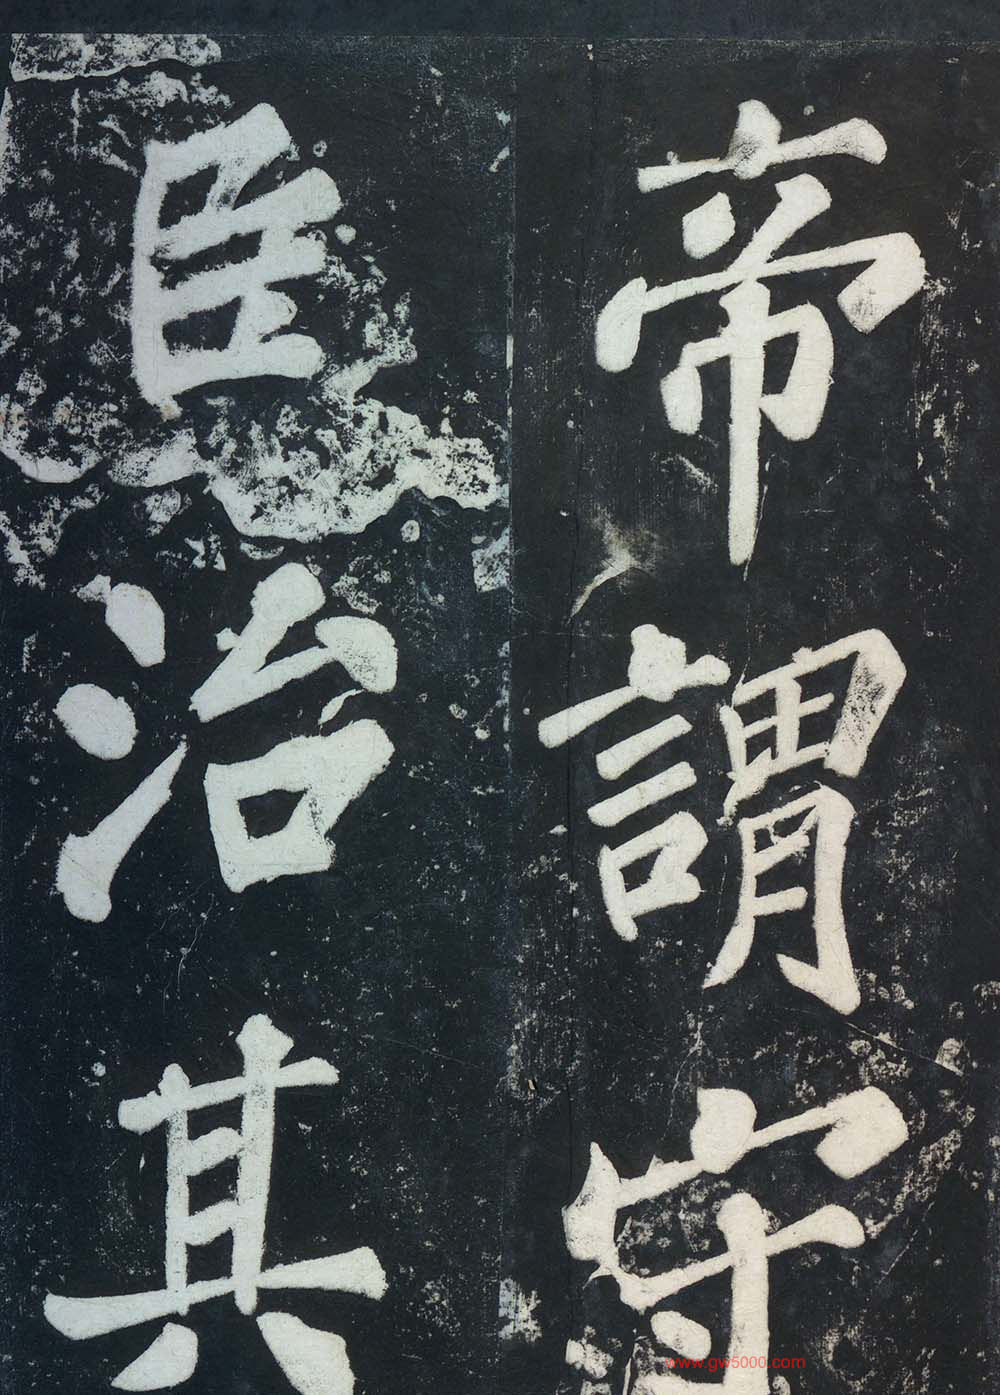 帝謂守
臣治其
www.gw5000.com